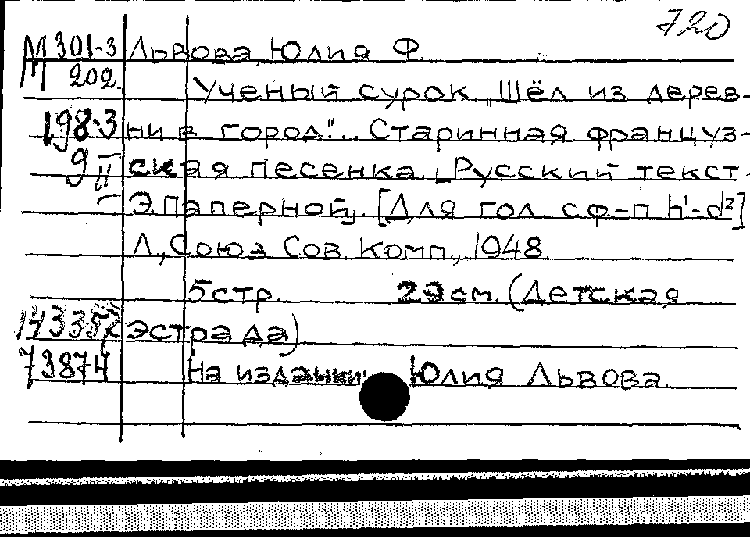 720
М 301-3 Львова, Юлия Ф.
202. Ученый сурок. "Шёл из дерев-
198-3 ни в город"... Старинная француз-
9 II ская песенка. Русский текст
Э. Паперной. [Для гол. с ф-п. h¹-d²]
Л., Союз Сов. Комп., 1948.
5 стр. 29 см. (Детская
эстрада)
73874 На издании: Юлия Львова.